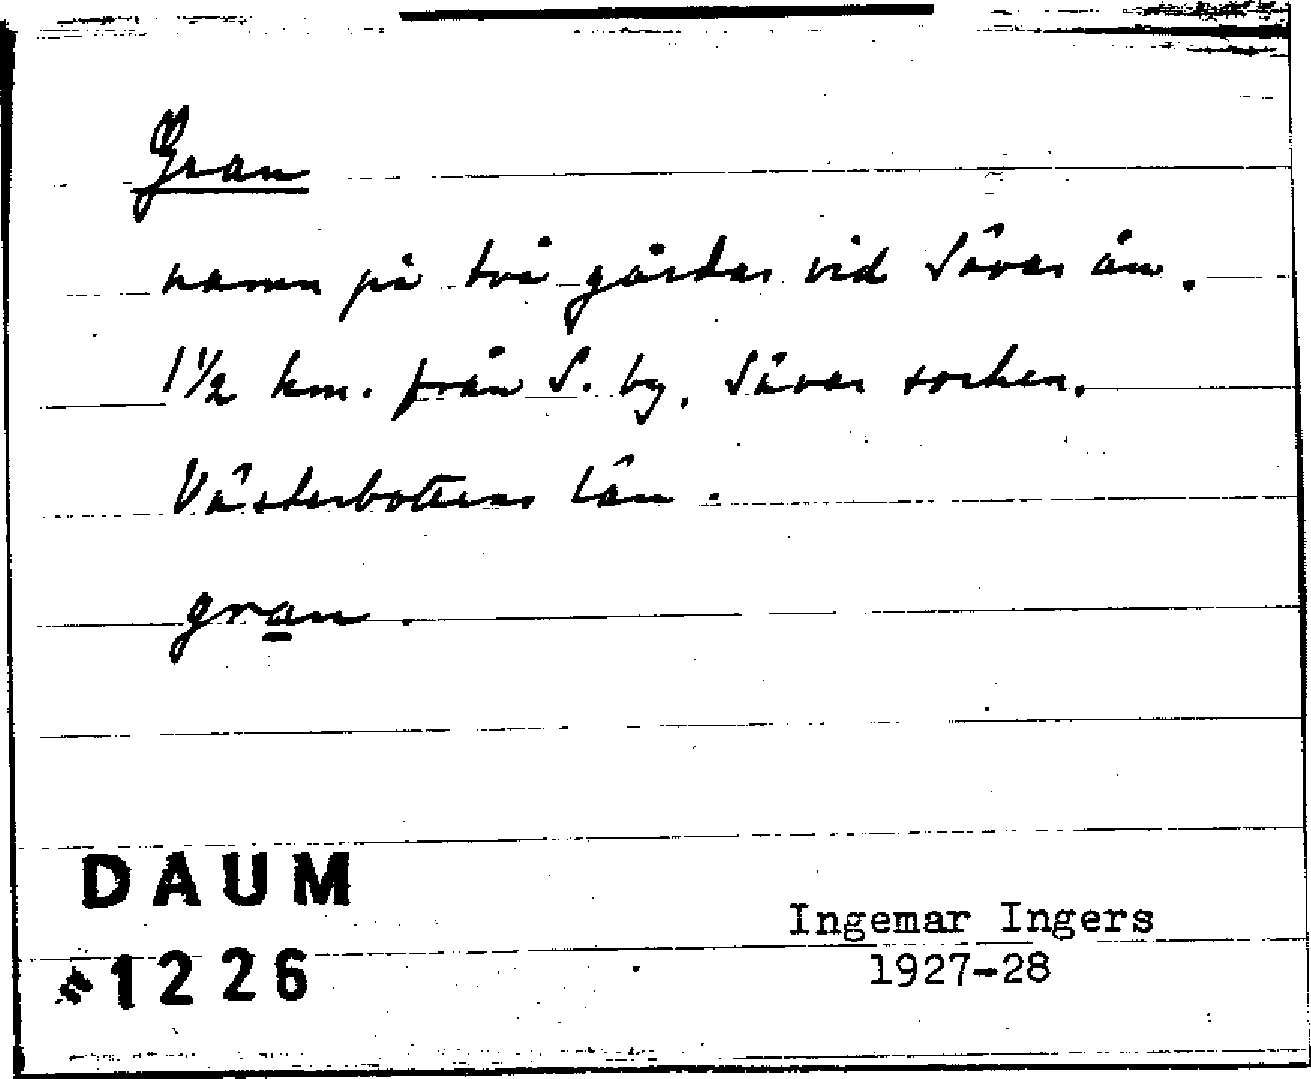 Gran
namn på två gårdar vid Sävar ån.
1 1/2 km. från S. by, Sävar socken,
Västerbottens län.
gran.
DAUM
1226
Ingemar Ingers
1927-28